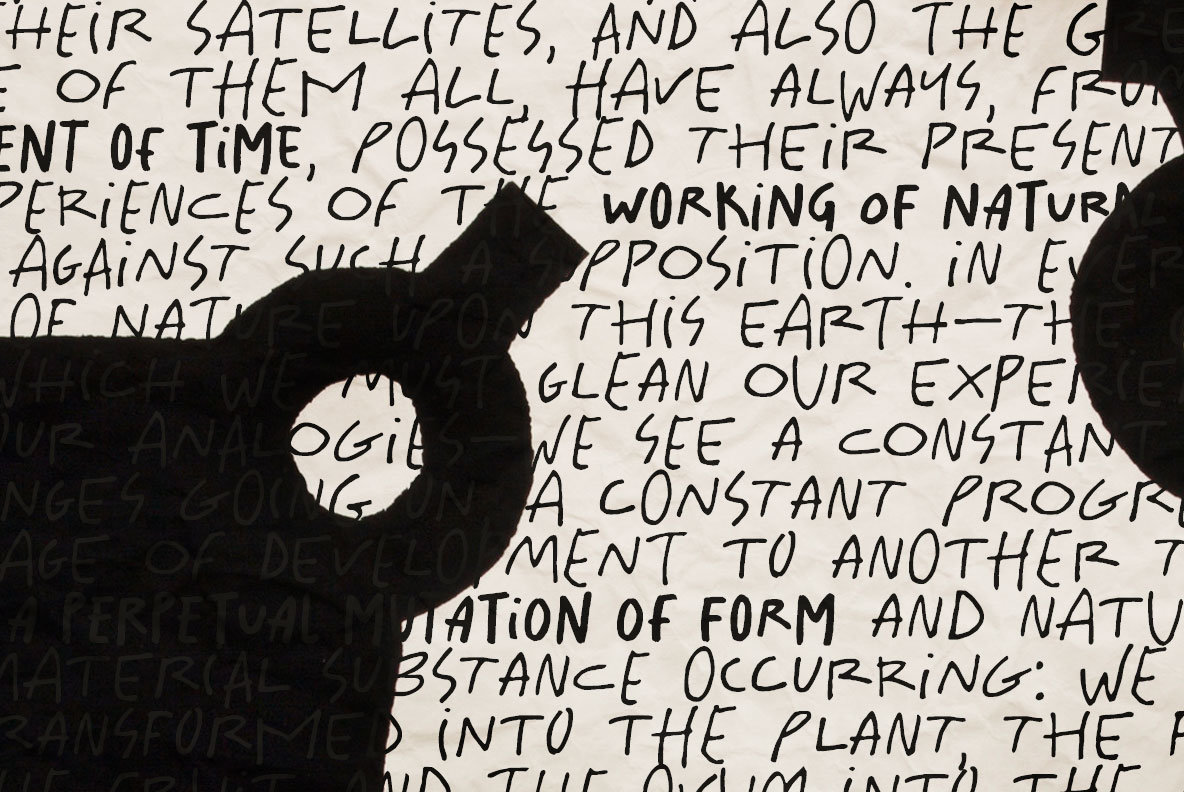 THEiR SATELLiTES, AND ALSO THE
OF THEM ALL, HAVE ALWAYS, FROM
ENT OF TiME, POSSESSED THEiR PRESENT
PERiENCES OF THE WORKiNG OF NATURAL
AGAiNST SUCH A SUPPOSiTiON. iN EVER
OF NATURE UPON THiS EARTH—THE
WHiCH WE MUST GLEAN OUR EXPERiE
OUR ANALOGiES—WE SEE A CONSTANT
NGES GOiNG ON A CONSTANT PROGR
AGE OF DEVELOPMENT TO ANOTHER T
A PERPETUAL MUTATiON OF FORM AND NATU
MATERiAL SUBSTANCE OCCURRiNG: WE
TRANSFORMED iNTO THE PLANT, THE F
THE FRUiT AND THE OVUM iNTO THE